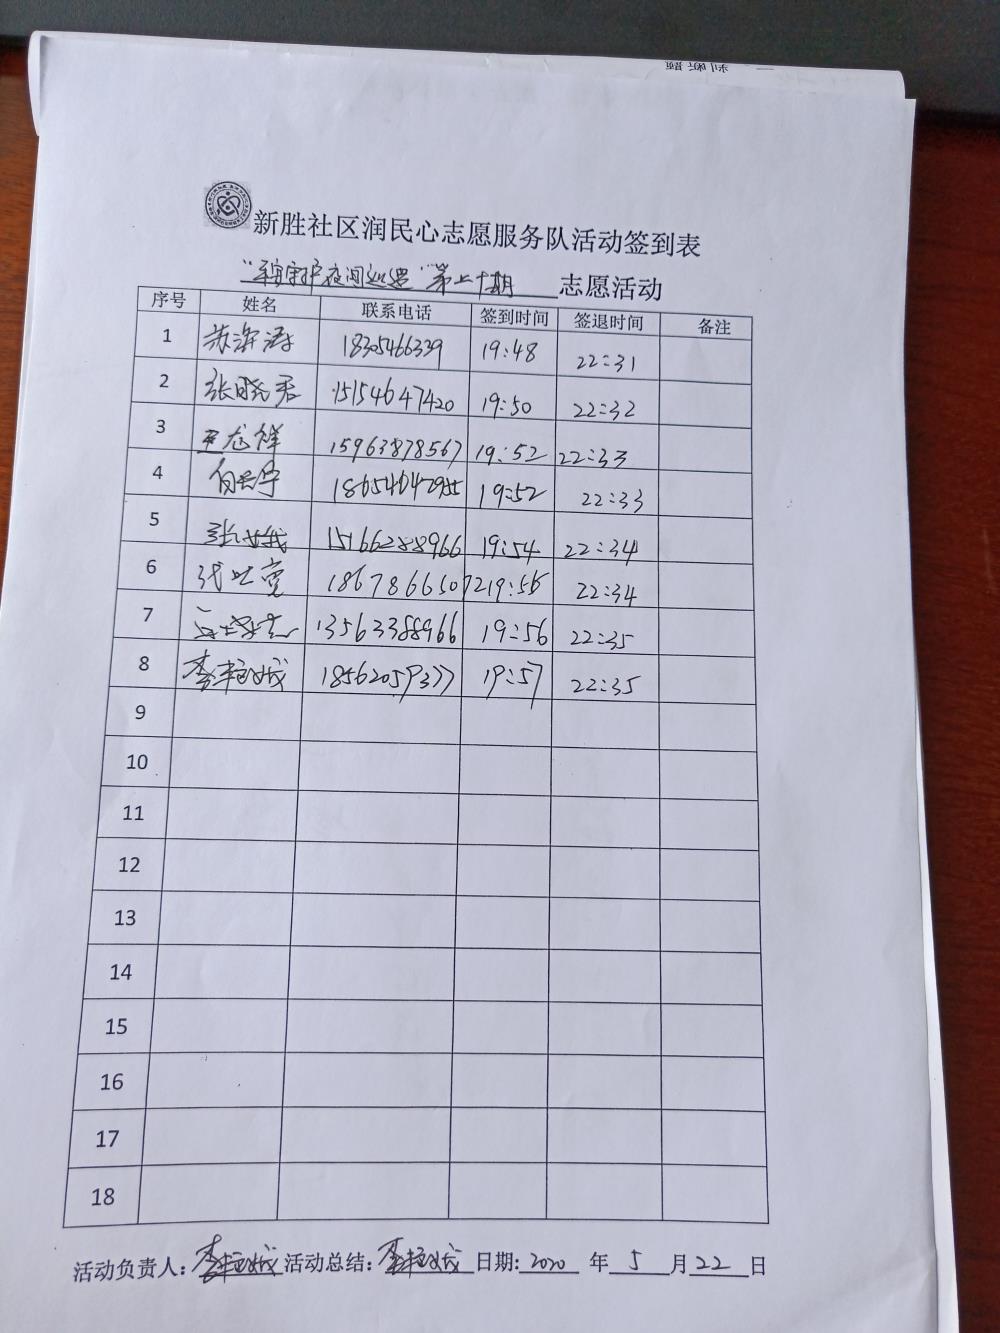 新胜社区润民心志愿服务队活动签到表
夜间巡逻"第六十期 志愿活动
序号 姓名 联系电话 签到时间 签退时间 备注
1 苏海涛 18305466339 19:48 22:31
2 张晓君 15154647420 19:50 22:32
3 王龙祥 15963878567 19:52 22:33
4 19:52 22:33
5 15166288966 19:54 22:34
6 18678666507 19:56 22:34
7 13563388966 19:56 22:35
8 李艳城 18562059377 19:57 22:35
9
10
11
12
13
14
15
16
17
18
活动负责人: 李艳城 活动总结: 李艳城 日期: 2020 年 5 月 22 日